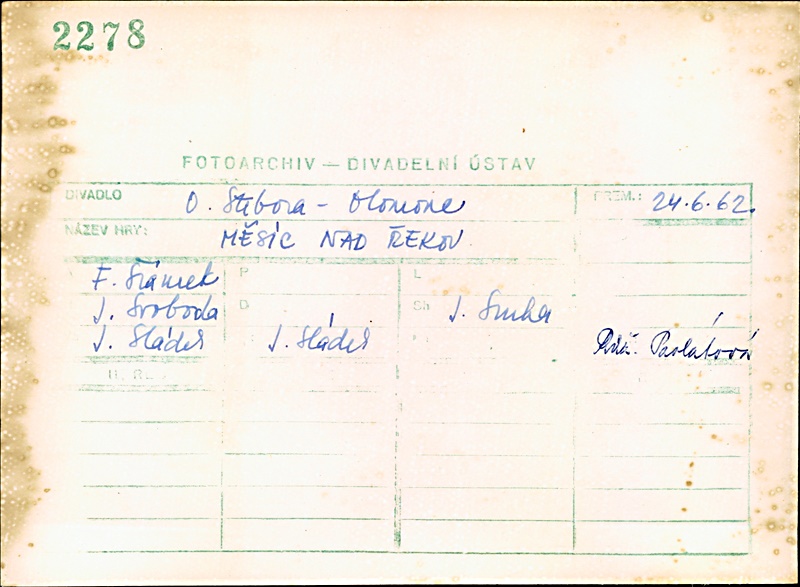 2278
FOTOARCHIV — DIVADELNÍ ÚSTAV
DIVADLO O. Stibora - Olomouc PREM.: 24.6.62.
NÁZEV HRY: MĚSÍC NAD ŘEKOU
F. Šrámek P L
J. Svoboda D Sh J. Smha
J. Sládek J. Sládek Pavlátová
H. RE